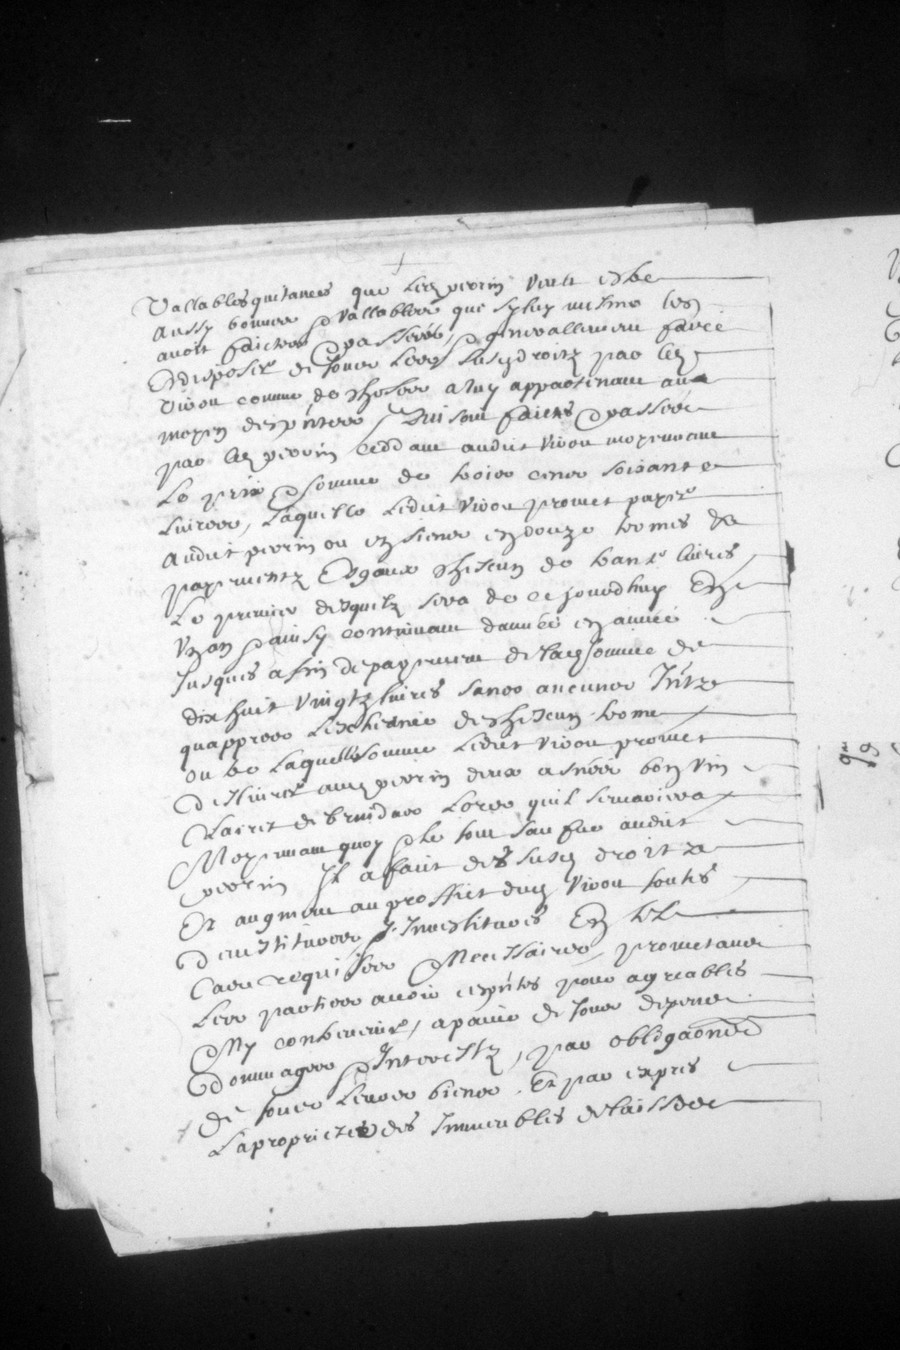 Vallables quitances que led perrin veult estre
Aussy bonnes & vallables que sy luy mesme les
avoit faictes & passées, & generallement faire
Et disposer de tous lesd susd droitz par led
Vivou comme de choses a luy appartenant au
moyen des pntes, Qui sont faictes & passées
par led perrin ceddant audict vivou moyennant
Le prix & somme de trois cens soixante
Livres, Laquelle ledict vivou promet payer
Audict perrin ou es siens en douze termes &
payementz Esgaux chescun de trante livres
Le premier desquelz sera de ce jourdhuy En
Un an & ainsy continuant d'année en année
Jusques a fin de payement de lad somme de
dix huit vingtz livres sans aucunes Intz
quappres lescheance de chescun terme
outre Laquelle somme ledict vivou promet
De livrer aud perrin deux asnées bon vin
Clairet de lors quil
Moyennant quoy & le tout sauf audict
perrin Il a faict des susd droitz
Et augment au proffict dud vivou toutes
Devestitures & Investitures En tel
Cas requises & Necessaires, prometants
Les parties avoir cespntes pour agreables
& Ny contrevenir, a paine de tous despens
Dommages & Interestz, par obligaons
De tous leurs biens. Et par expres
La proprietes des Immeubles delaissés